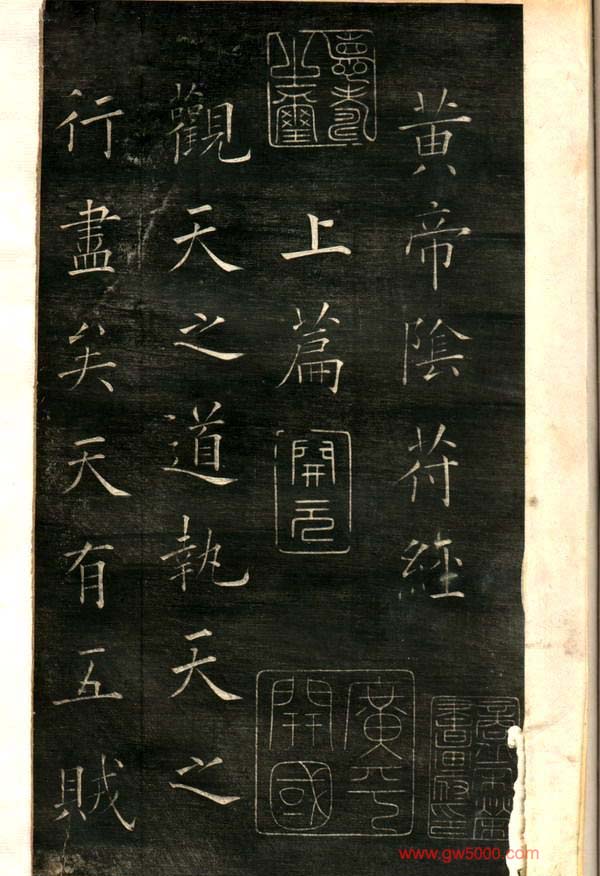 黄帝陰符經
上篇
觀天之道執天之
行盡矣天有五賊
開元
廣平開國
www.gw5000.com